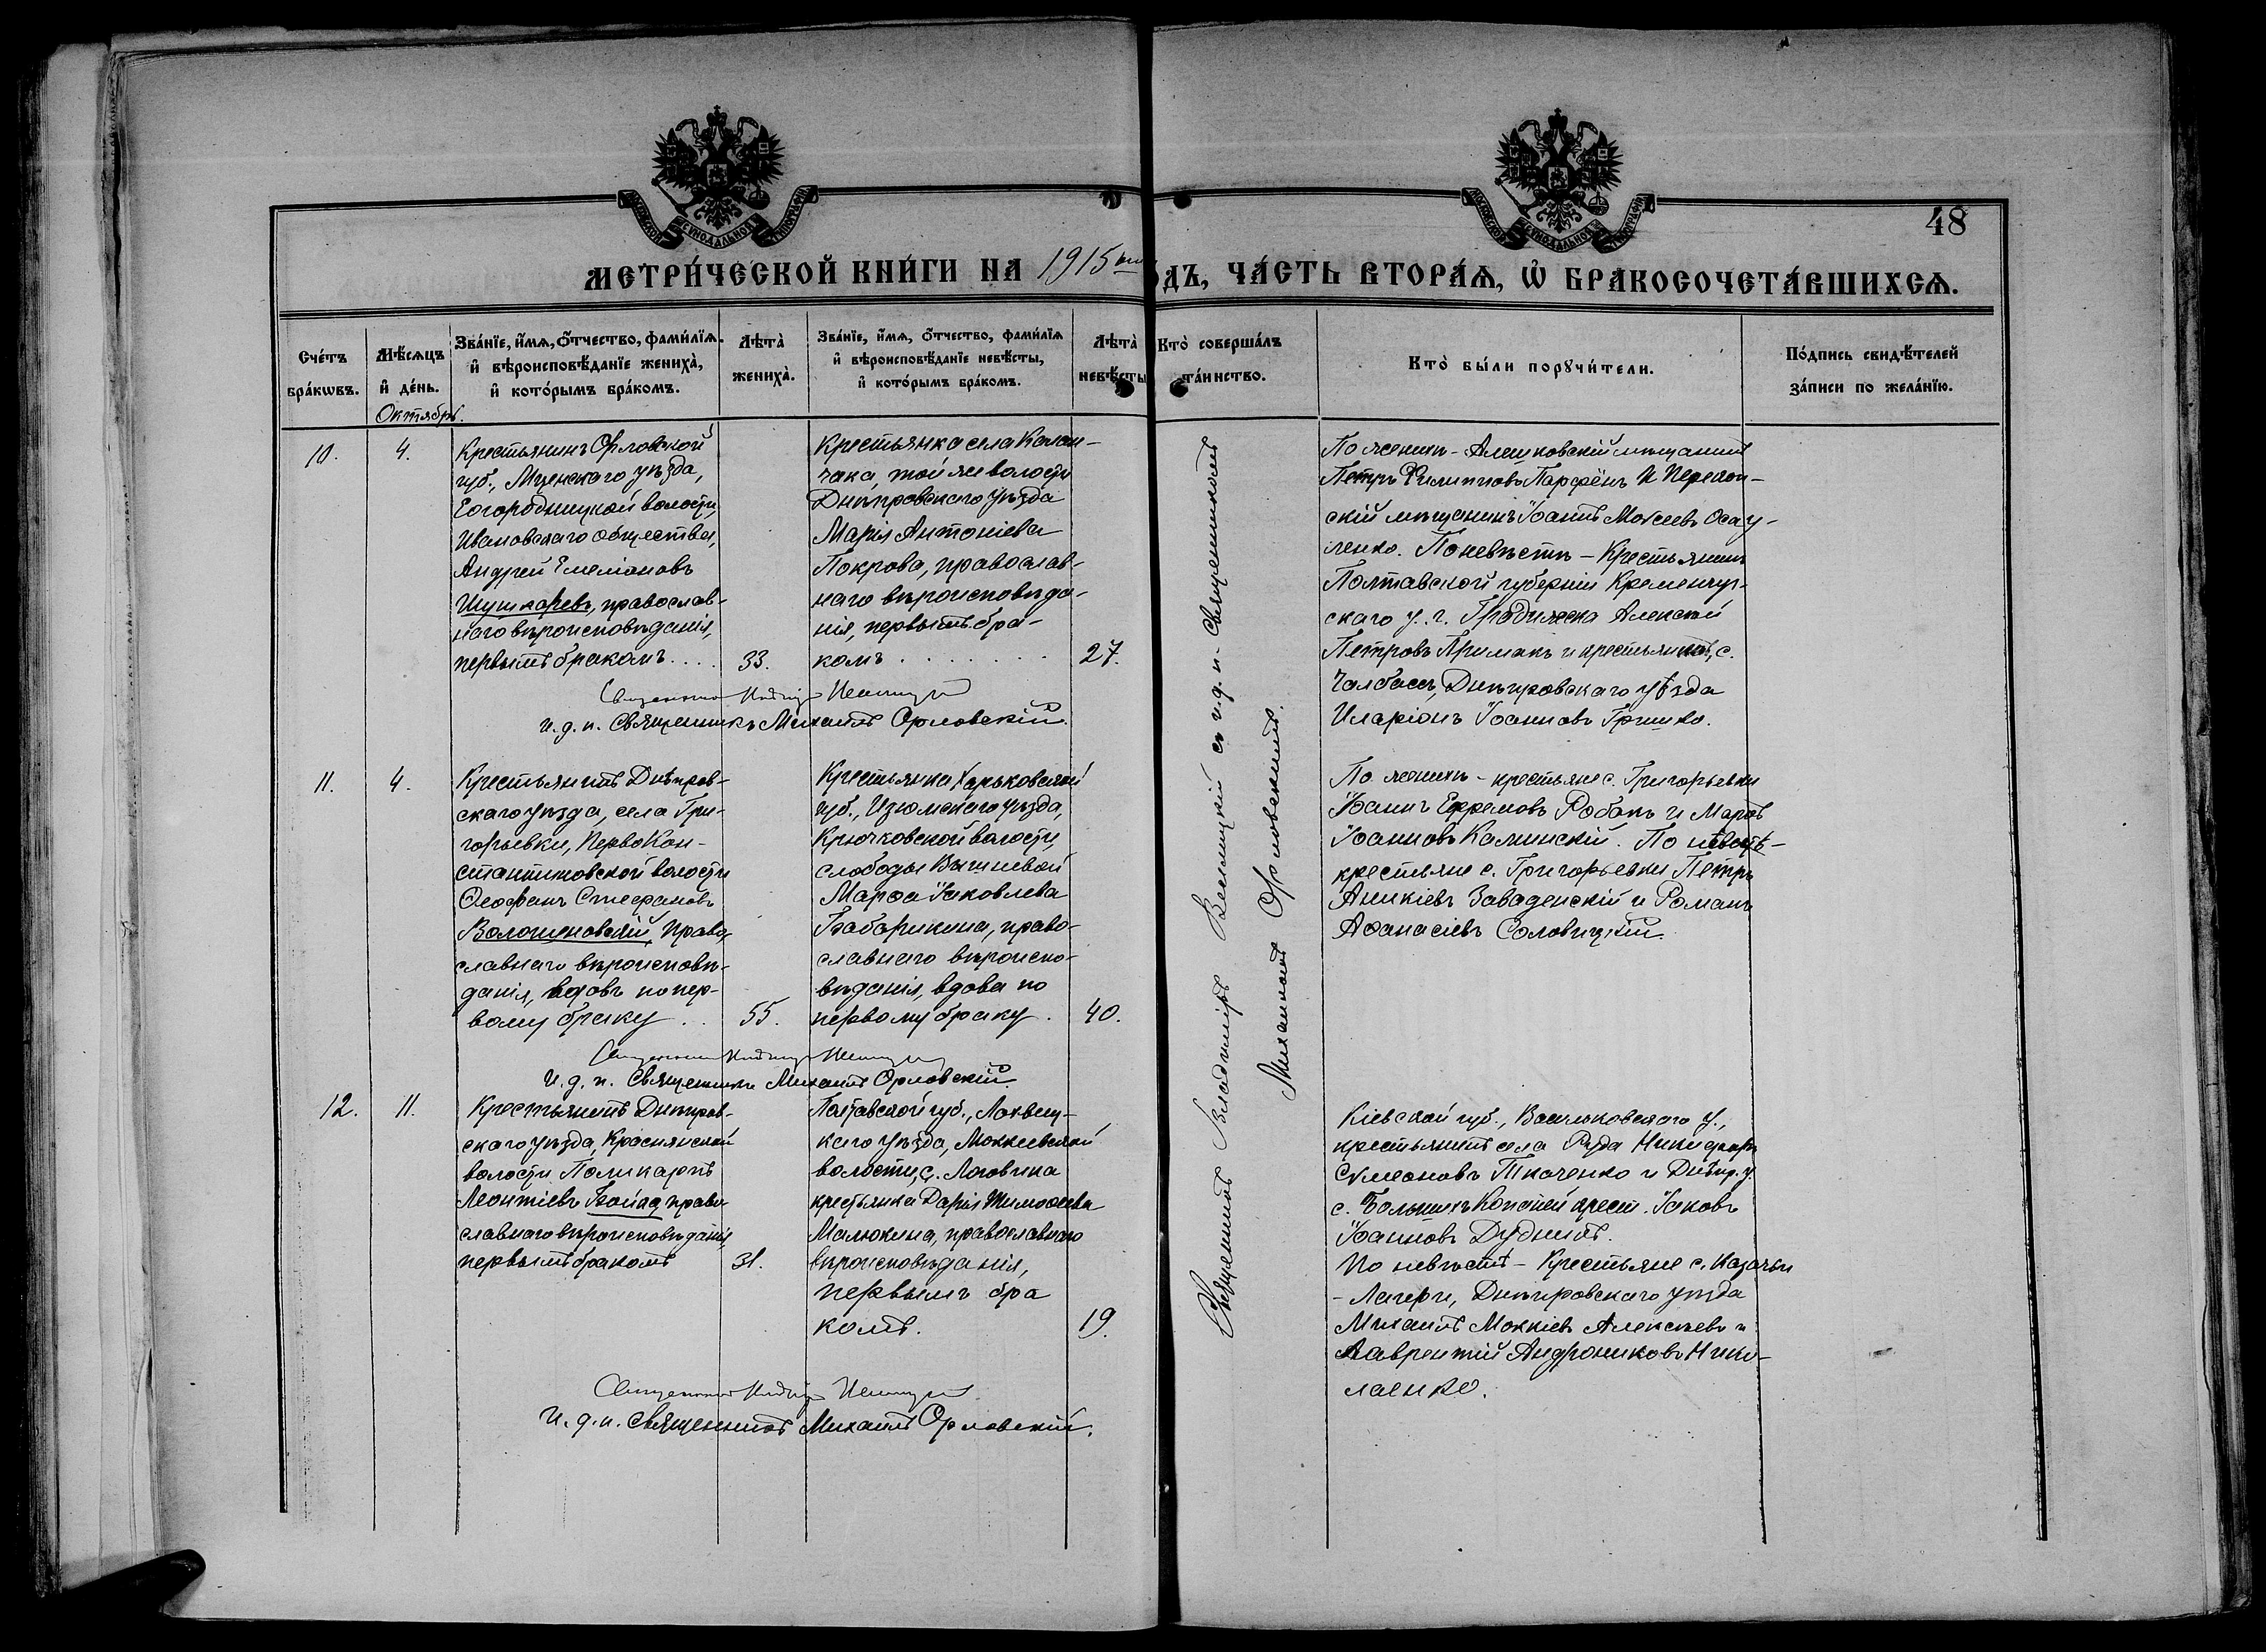 48
МЕТРИ́ЧЕСКОЙ КНИ́ГИ НА 1915ый ГОДЪ, ЧА́СТЬ ВТОРА́Ѧ, Ѡ҆ БРАКОСОЧЕТА́ВШИХСѦ.
Сче́тъ бра́кѡвъ.
Мѣ́сѧцъ и҆ де́нь.
Октябрь.
Зва́нїе, и҆́мѧ, ѻ҆́тчество, фами́лїѧ
и҆ вѣроисповѣ́данїе жениха̀,
и҆ кото́рымъ бра́комъ.
Лѣта̀ жениха̀.
Зва́нїе, и҆́мѧ, ѻ҆́тчество, фами́лїѧ
и҆ вѣроисповѣ́данїе невѣ́сты,
и҆ кото́рымъ бра́комъ.
Лѣта̀ невѣ́сты
Кто̀ соверша́лъ та́инство.
Кто̀ бы́ли порꙋчи́тели.
По́дпись свидѣ́телей
за́писи по жела́нїю.
10.
4.
Крестьянинъ Орловской
губ., Мценскаго уѣзда,
Богородицкой волости,
Ивановскаго общества,
Андрей Емеліановъ
Шушкаревъ, православ-
наго вѣроисповѣданія,
первымъ бракомъ....
33.
Крестьянка села Калан-
чака, той же волости
Днѣпровскаго уѣзда
Марія Антоніева
Покрова, православ-
наго вѣроисповѣда-
нія, первымъ бра-
комъ . . . . . . . .
27.
По женихѣ - Алешковскій мѣщанинъ
Петръ Филипповъ Парфёнъ и Перекоп-
скій мѣщанинъ Іоаннъ Моѵсеевъ Осау-
ленко. По невѣстѣ - Крестьянинъ
Полтавской губерніи Кременчуг-
скаго у. г. Градижска Алексѣй
Петровъ Примакъ и крестьянинъ с.
Чалбасъ, Днѣпровскаго уѣзда
Иларіонъ Іоанновъ Гришко.
Священникъ
и. д. п. Священникъ Михаилъ Орловскій.
11.
4.
Крестьянинъ Днѣпров-
скаго уѣзда, села Гри-
горьевки, Перво Кон-
стантиновской волости
Ѳеофанъ Стефановъ
Волошеновскій, право-
славнаго вѣроисповѣ-
данія, вдовъ по пер-
вому браку . .
55.
Крестьянка Харьковской
губ., Изюмскаго уѣзда,
Крючковской волости,
слободы Вышневой
Марѳа Іаковлева
Бабарикина, право-
славнаго вѣроиспо-
вѣданія, вдова по
первому браку .
40.
По женихѣ - крестьяне с. Григорьевки
Іоаннъ Ефремовъ Робакъ и Маркъ
Іоанновъ Калинскій. По невѣстѣ -
крестьяне с. Григорьевки Петръ
Аникіевъ Заваденскій и Романъ
Аѳанасіевъ Соловицкій.
Священникъ
И. д. п. Священникъ Михаилъ Орловскій.
12.
11.
Крестьянинъ Днѣпров-
скаго уѣзда, Краснянской
волости Поликарпъ
Леонтіевъ Бойко, право-
славнаго вѣроисповѣданія,
первымъ бракомъ
31.
Полтавской губ., Лохвиц-
каго уѣзда, Моккіевской
волости, с. Луговика
крестьянка Дарія Тимоѳеева
Малюкина, православнаго
вѣроисповѣданія,
первымъ бра
комъ.
19.
Кіевской губ., Васильковскаго у.,
крестьянинъ села Руда Никифоръ
Сѵмеоновъ Ткаченко и Днѣпр. у.
с. Большихъ Копаней крест. Іаковъ
Іоанновъ Дудникъ.
По невѣстѣ - Крестьяне с. Казачьи
- Лагери, Днѣпровскаго уѣзда
Михаилъ Моккіевъ Алексѣевъ и
Лаврентій Андрониковъ Нико-
лаенко.
Священникъ
И. д. п. Священникъ Михаилъ Орловскій.
Священникъ Владиміръ съ и. д. п. Священникомъ
Михаиломъ Орловскимъ.